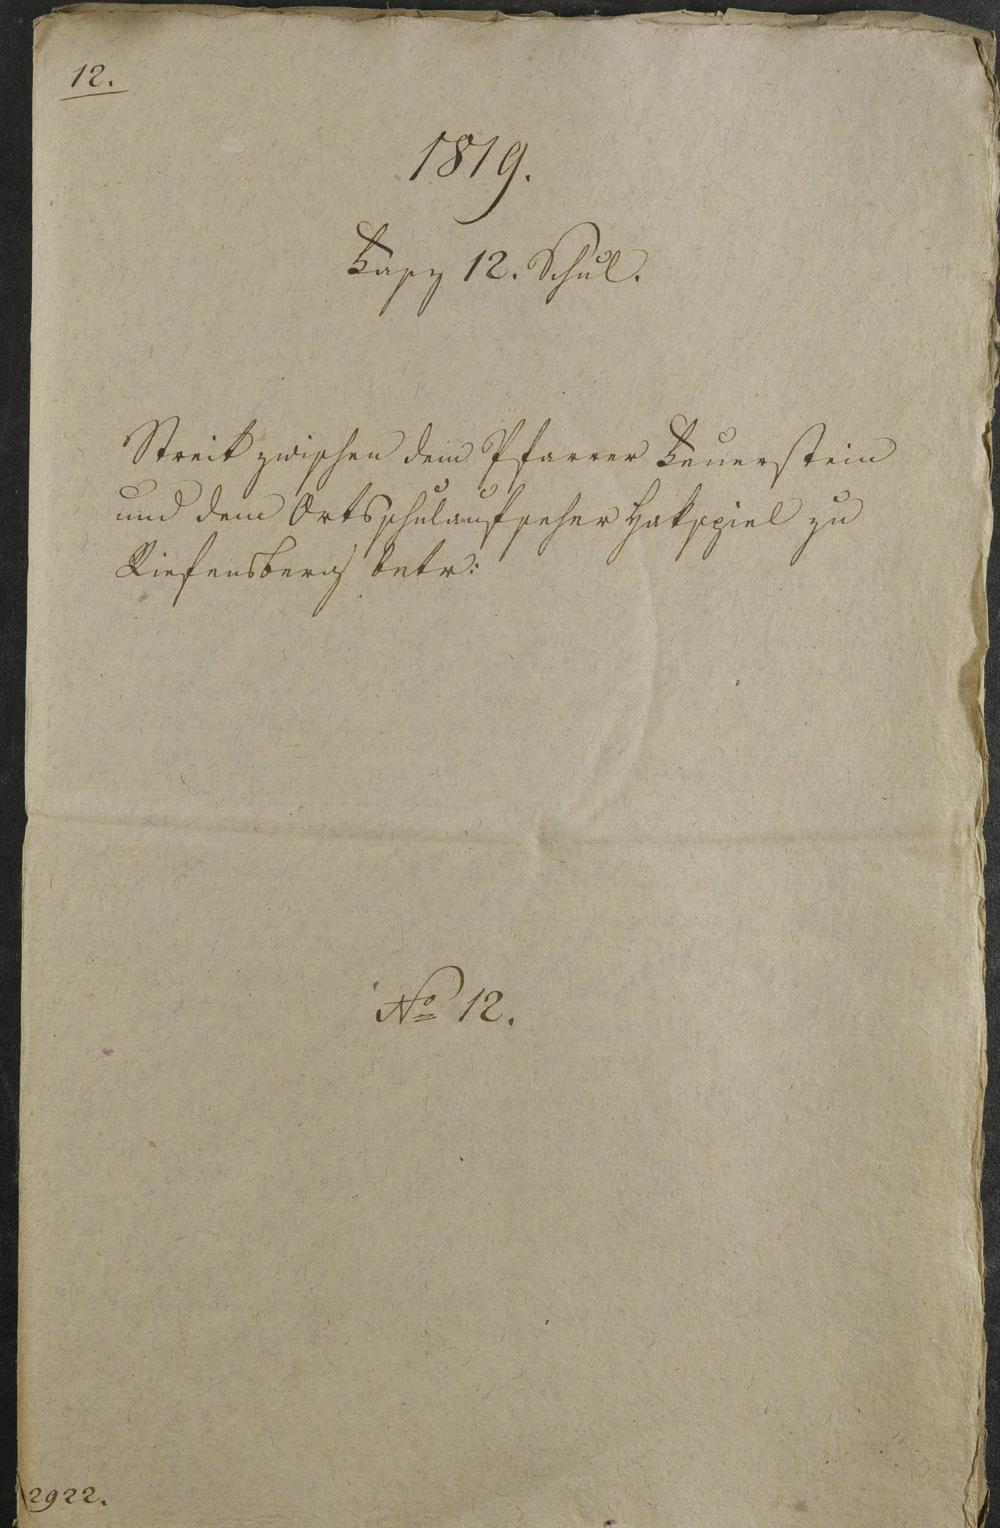 12.
1819.
Fasz 12. Schul.
Streit zwischen dem Pfarrer Feuerstein
und dem Ortsschulaufseher Hakspiel zu
Riefensberg betr:
No 12.
2922.